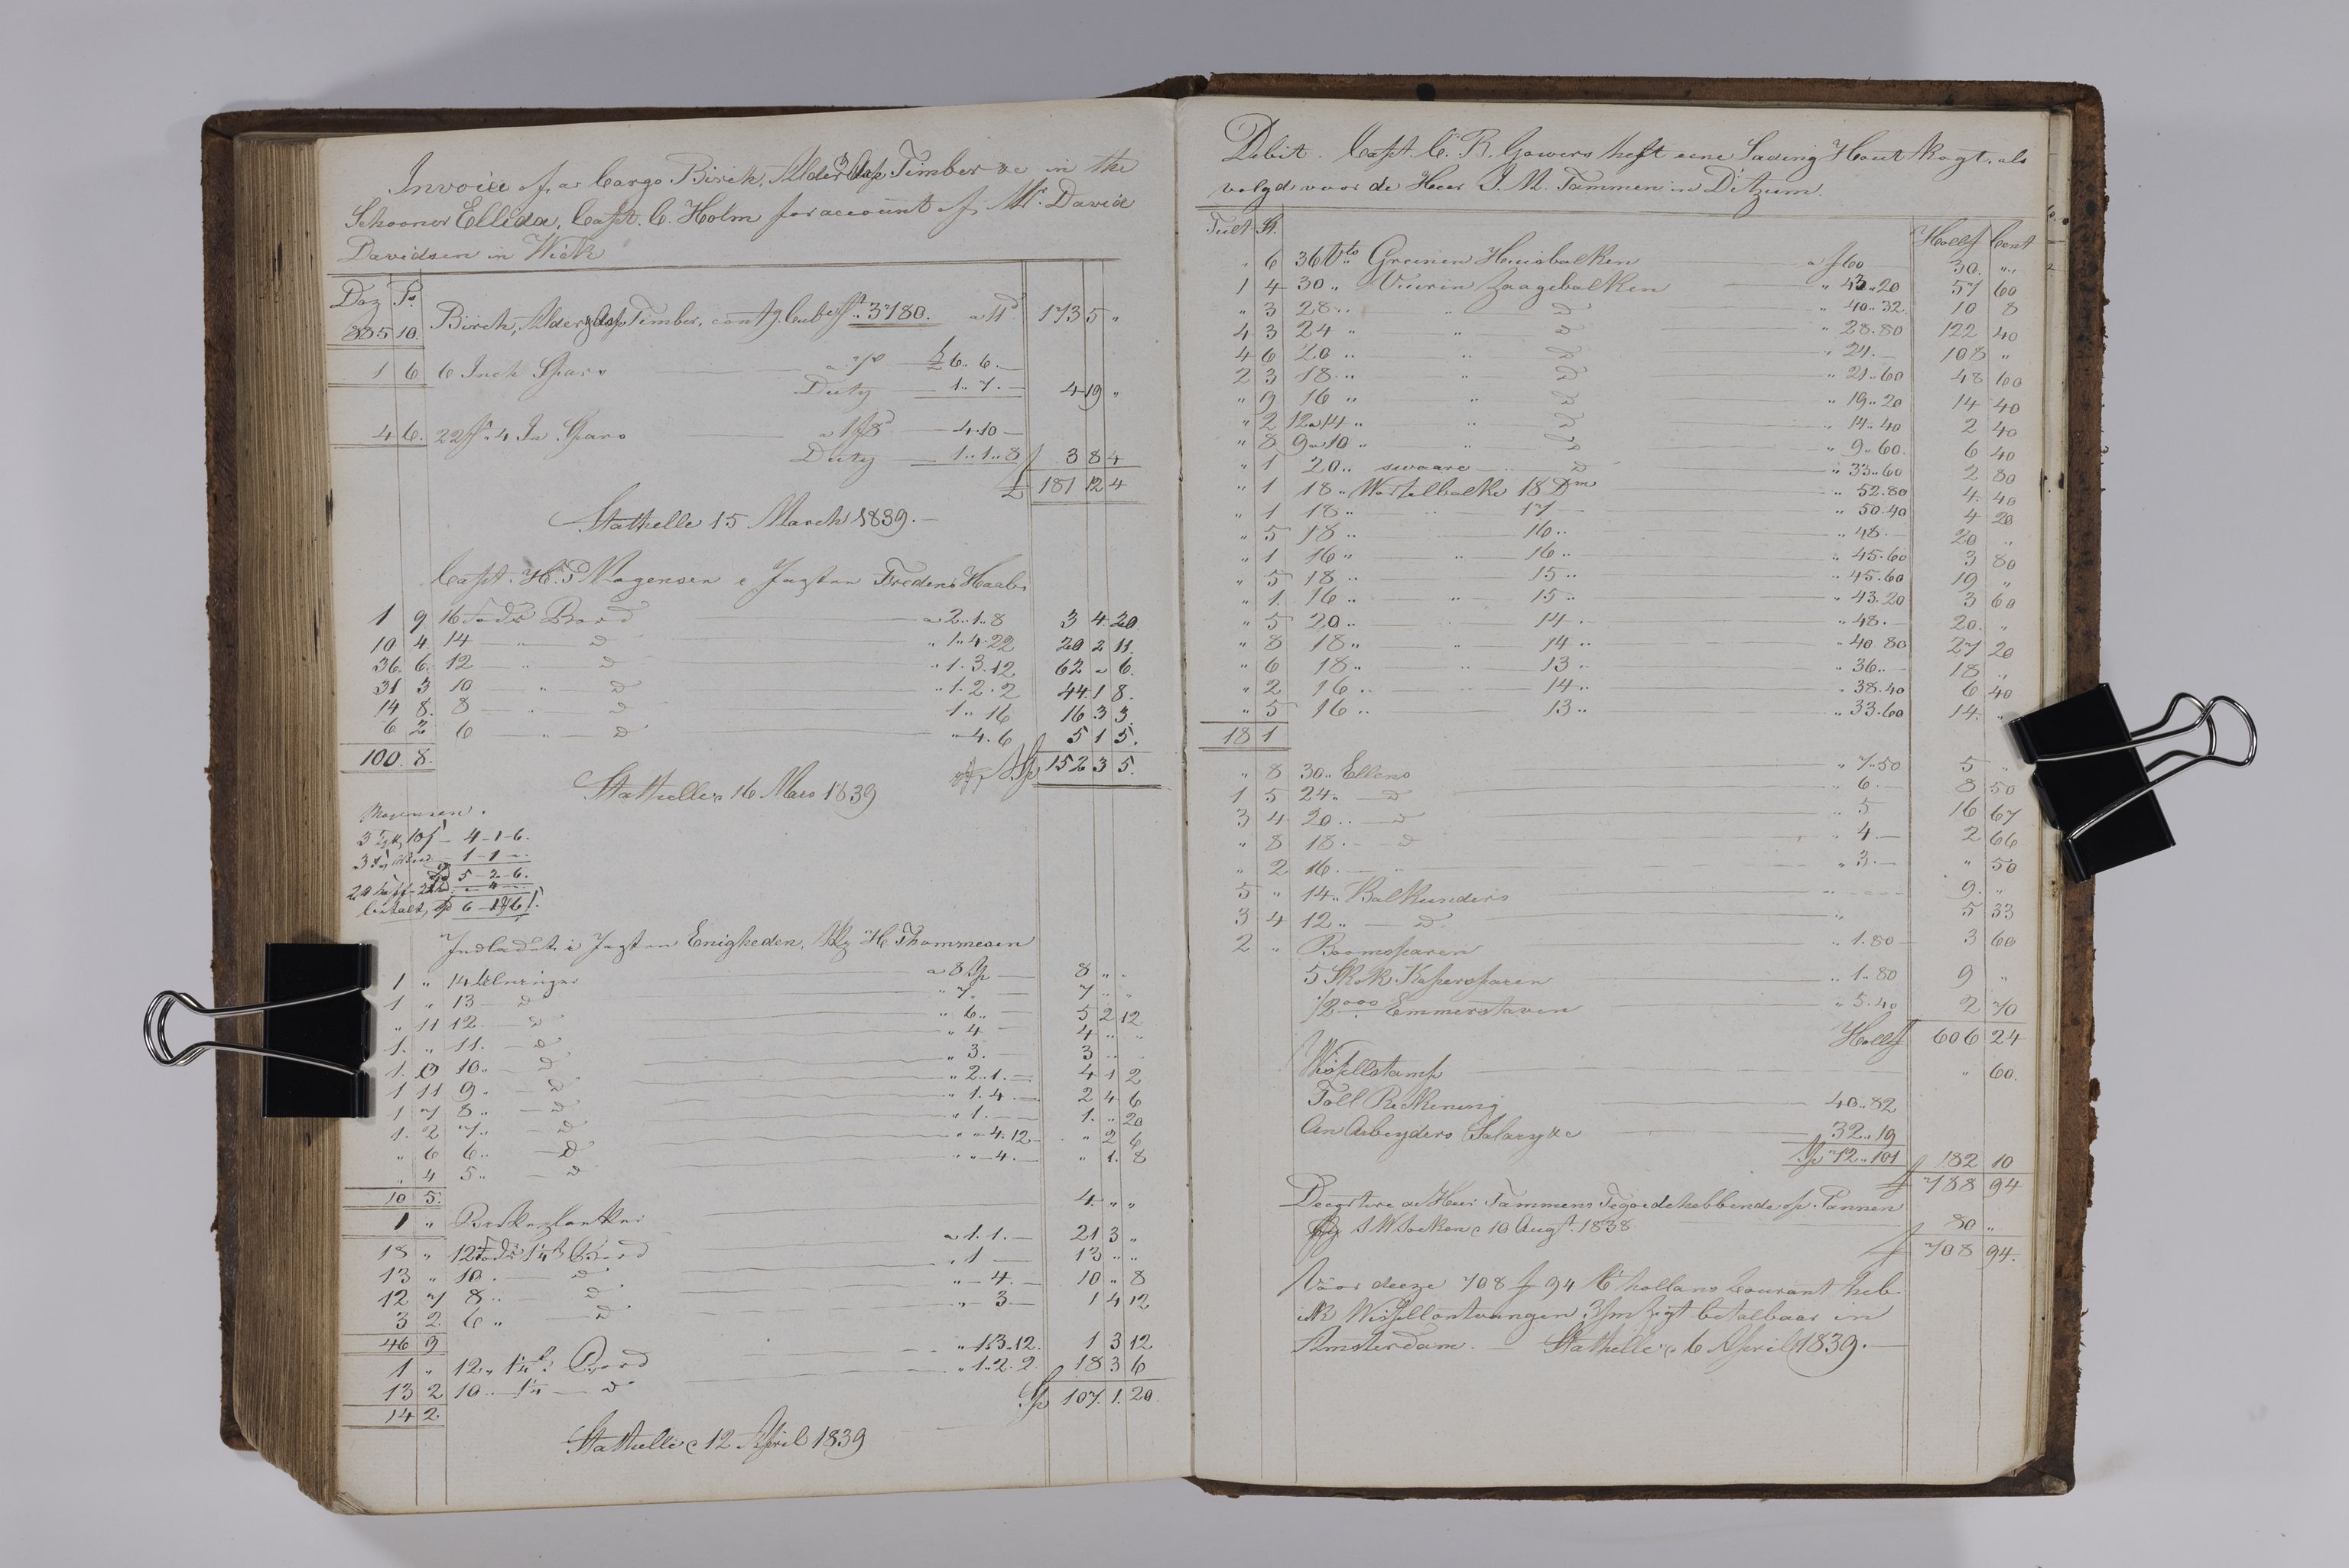 Invoice of a Cargo Birch, Alder & Asp Timber &c in the
Schooner Ellida, Capt. C. Holm for account of Mr. David
Davidsen in Wick
Doz P.
335 10. Birch, Alder & Asp Timber, contg. Cub. ff. 3"180. a 11d 173 5 "
1 6 6 Inch Spars £ 6.. 6. —
Duty — 1.. 7. — 4 19 "
4 6. 22 ff. 4 In Spars — 4.10 —
Duty — 1..1..8 3 8 4
£ 181 12 4
Stathelle 15 March 1839. —
Capt. H. P. Mogensen i Jagten Fredens Haab.
1 9 16 Fods Bord a 2..1..8 3 4 20
10 4 14 — " — D " 1..4.22 20 2 11.
36. 6. 12 — " — D " 1.3.12 62 " 6.
31 3 10 — " — D " 1.2.2 44 1 8.
14 8. 8 — " — D 1.. 16 16 3 3.
6 2 6 — " — D "4.6 5 1 5.
100. 8. Sp 152 3 5.
Stathelle 16 Mars 1839
Mogensen.
4-1-6.
1-1-
5-2-6.
betalt,
Indladet i Jagten Enigheden, H. Thommesen
1 " 14 Alninger a 8 Sp — 8 " "
1 " 13 — D " 7. — 7 " "
" 11 12. — D " 6.. — 5 2 12
1. " 11. — D " 4 — 4 " "
1. 10.. — D " 3. — 3 " "
1 11 9. — D " 2..1. — 4 1 2
1 7 8.. — D " 1.4. — 2 4 6
1. 2 7.. — D " 1. — 1. " 20
" 6 6.. — D " " 4.12 — " 2 6
" 4 5.. — D " " 4. — " 1. 8
10 5.
1 " 4 " "
18 " 12 Fods 1¼ Bord a 1.1. — 21 3 "
13 " 10. — D " 1 — 13 " "
12 7 8.. — D " — 4. — 10 " 8
3 2 6 " — D " — 3 — 1 4 12
46 9
1 " 12.. 1¼ Bord " 1.3..12. 1 3 12
13 2 10.. 1¼ — D " 1..2.2. 18 3 6
14 2 Sp 107. 1. 20.
Stathelle 12 April 1839
Debit. Capt. C. R. Gowers heft eene Lading Hout kogt, als
volgd voor de Heer J. M. Tammen in Ditzum.
Tult St. Hollf Cent
" 6 36 Vts Greinen Huisbalken a f 60 30. "
1 4 30 " Vuurin Zaagebalken " 43..20 57 60
" 3 28.. " D " 40..32. 10 8
4 3 24 " " D " 28.80 122 40
4 6 20 .. " D " 24.— 108 "
2 3 18.. " D " 21..60 48 60
" 9 16 " " D " 19..20 14 40
" 2 12 a 14 " " D " 14..40 2 40
" 8 9 a 10 " " D " 9..60. 6 40
" 1 20.. swaare — D " 33..60 2 80
" 1 18.. Wortelbalke 18 Dm " 52.80 4. 40
" 1 18.. — 17 — " 50.40 4 20
" 5 18 .. — 16.. " 48.— 20 "
" 1 16 " " 16.. " 45.60 3 80
" 5 18 .. — 15 .. " 45.60 19 "
" 1. 16 .. " 15 .. " 43.20 3 60
" 5 20 .. — 14 . " 48.— 20. "
" 8 18 .. " 14 .. " 40.80 27 20
" 6 18 .. 13 .. " 36.. — 18 "
" 2 16 .. — 14 .. " 38.40 6 40
" 5 16 .. — 13 .. " 33.60 14. "
18 1
" 8 30.. Ellens " 7.50 5 "
1 5 24. — D " 6. — 8 50
3 4 20 .. — D " 5 16 67
" 8 18. — D " 4.— 2 66
" 2 16. — " " 3.— " 50
5 " 14.. Balkunders 9. "
3 4 12.. — D 5 33
2 " Boomsparen " 1.80 3 60
5 Skok Kapersparen " 1..80 9 "
½ 000 Emmerstaven " 5.40 2 70
Hollf 606 24
Wissellstamp " 60.
Toll Rekening 40..82
An Arbeyders Salary &c 32..19
Sp 72..101 f 182 10
f 788 94
Deegtere de Heer Tammens Tegoedehebbende op Pannen
10 Augt. 1838 80 "
f 708 94.
Voor deeze 708 f 94 Ct hollans Courant heb
ik Wissell ontvangen, 3/m zigt betalbaar in
Amsterdam. — Stathelle 6 April 1839. —